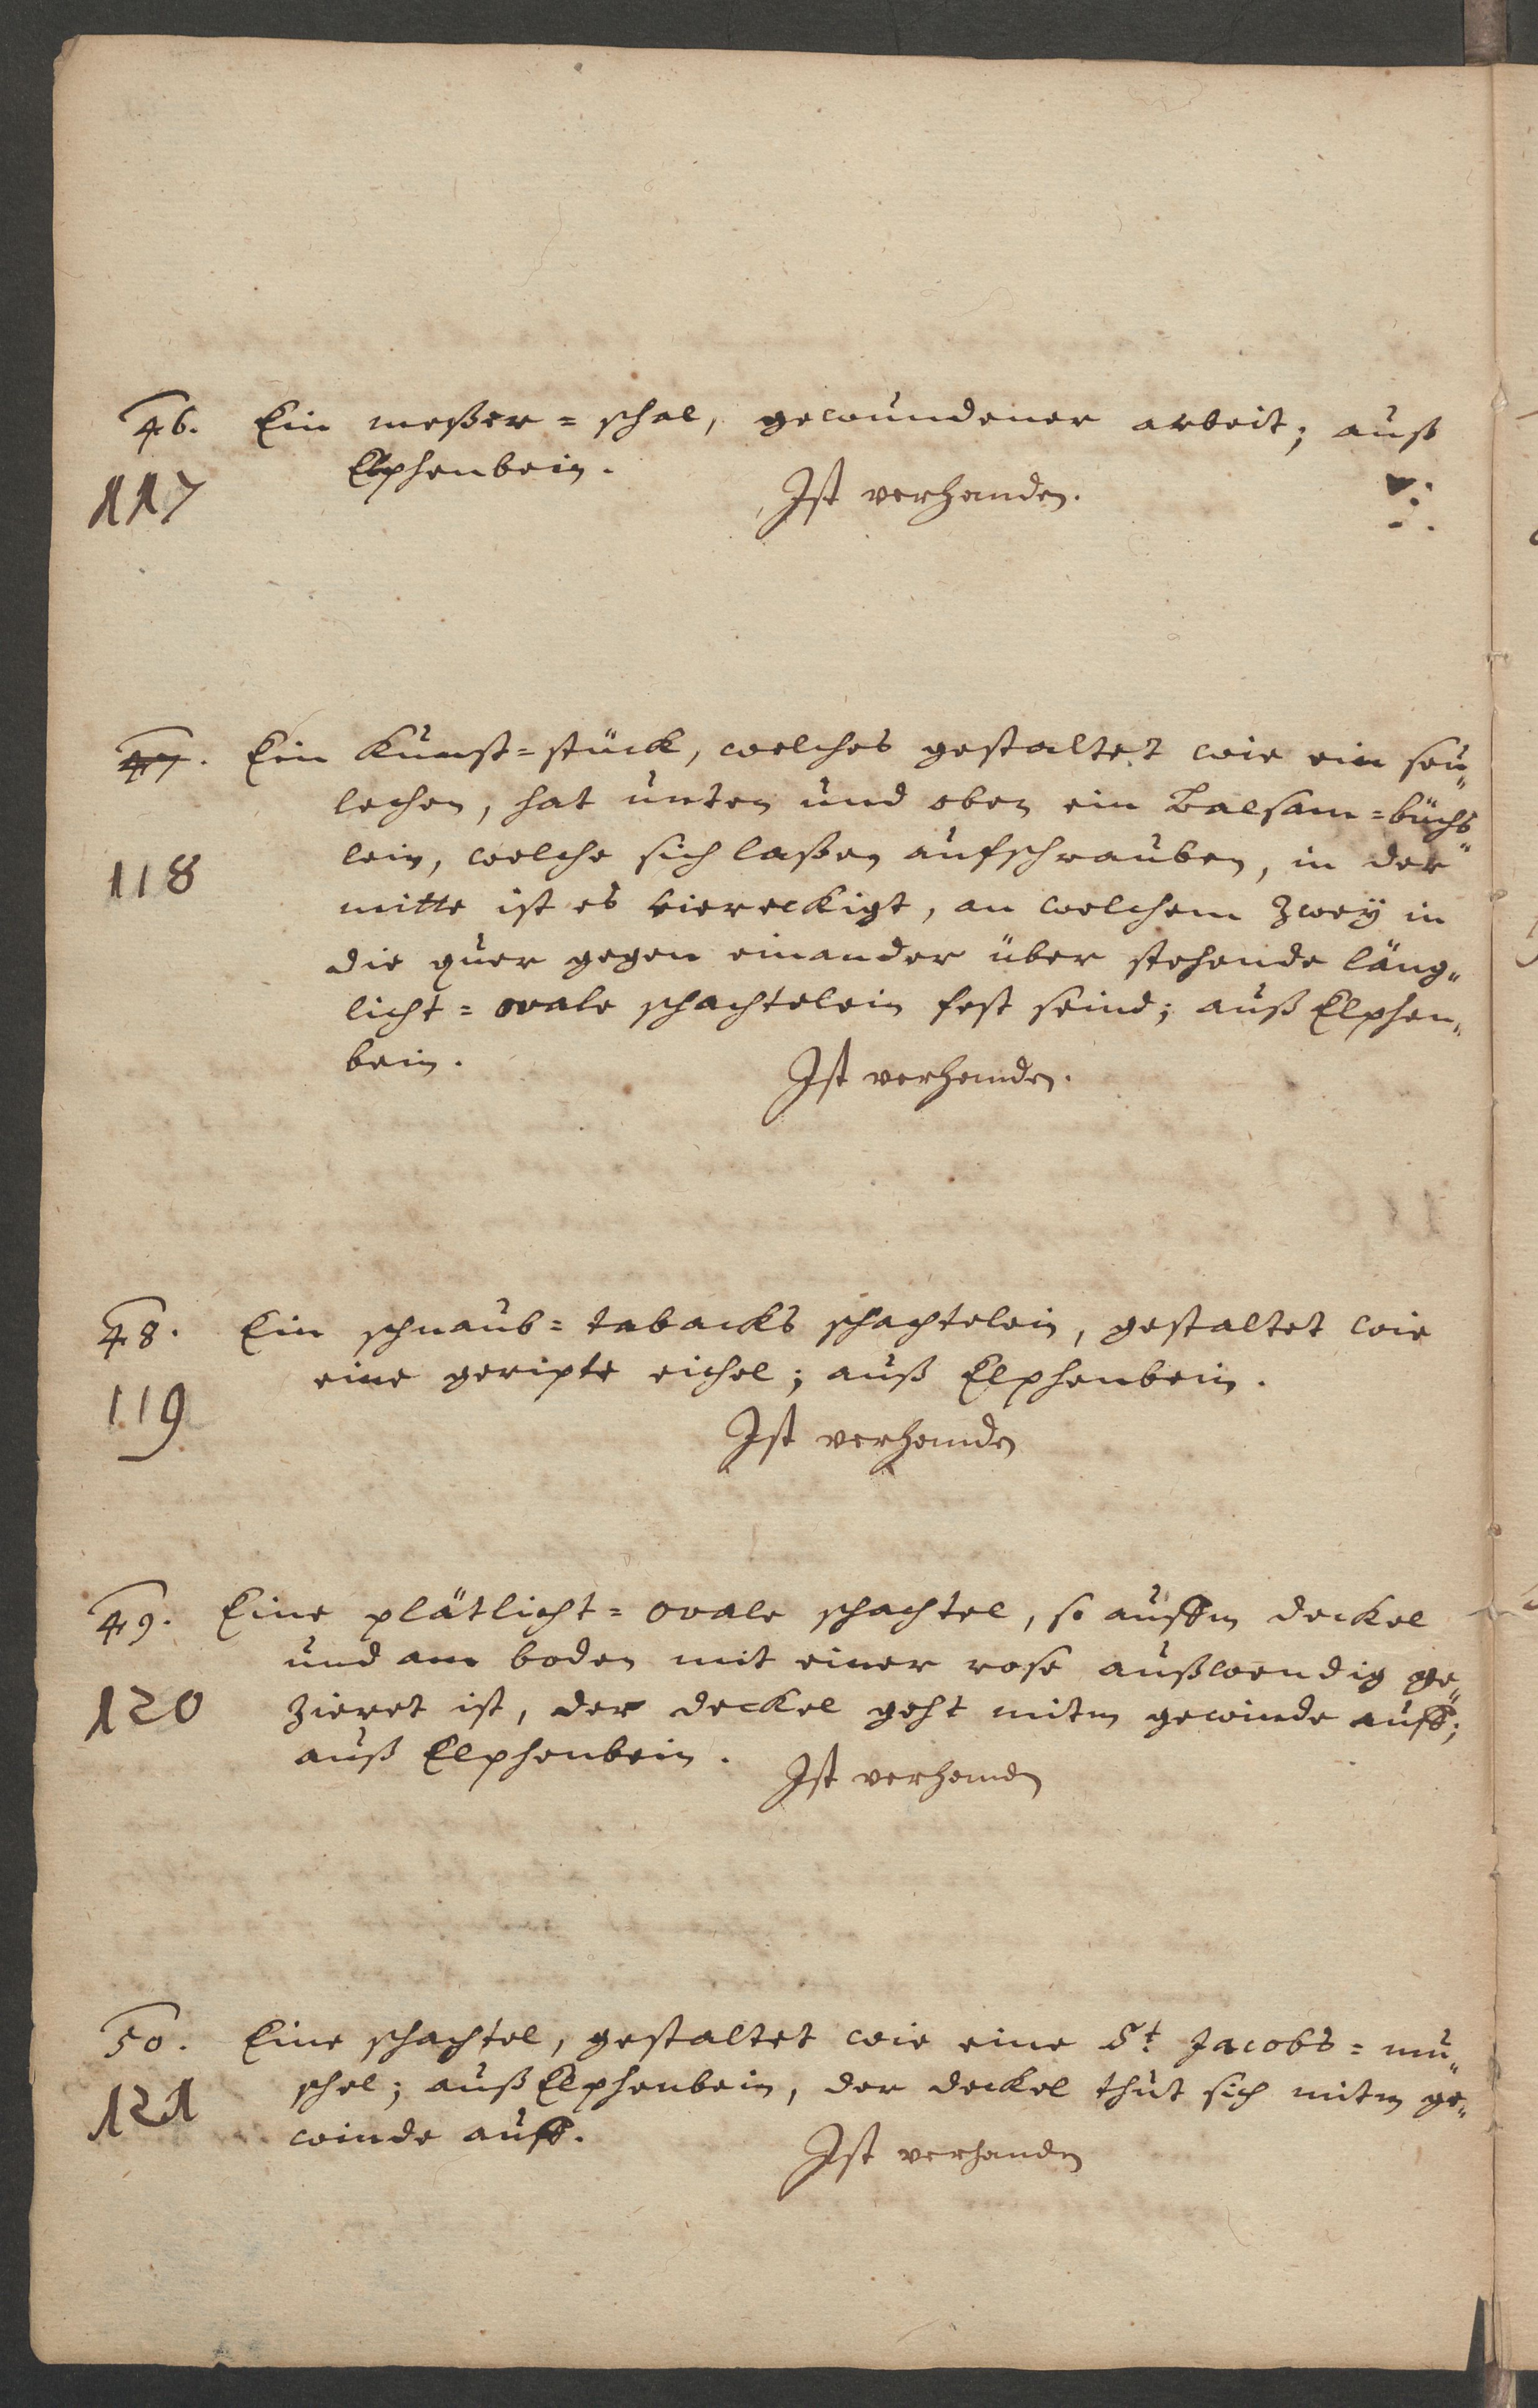 46. Ein meßer=schal, gewundener arbeit; auß
117 Elphenbein.
Ist verhanden.
47. Ein Kunst=stück, welches gestaltet wie ein seu„
lechen, hat unten und oben ein Balsam=büchs„
118 lein, welche sich laßen aufschrauben, in der
mitte ist es viereckigt, an welchem zweÿ in
die quer gegen einander über stehende läng„
licht=ovale schachtelein fest seind; auß Elphen„
bein.
Ist verhanden.
48. Ein schnaub=tabacks schachtelein, gestaltet wie
119 eine geripte eichel; auß Elphenbein.
Ist verhanden
49. Eine plätlicht=ovale schachtel, so auffm deckel
und am boden mit einer rose außwendig ge„
120 zieret ist, der deckel geht mitm gewinde auff;
auß Elphenbein.
Ist verhanden
50. Eine schachtel, gestaltet wie eine St. Jacobs=mu„
121 schel; auß Elphenbein, der deckel thut sich mitm ge„
winde auff.
Ist verhanden